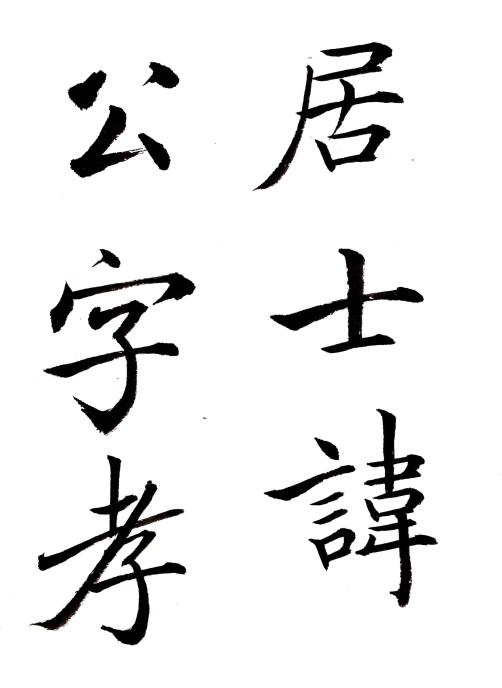 居士諱
公字孝